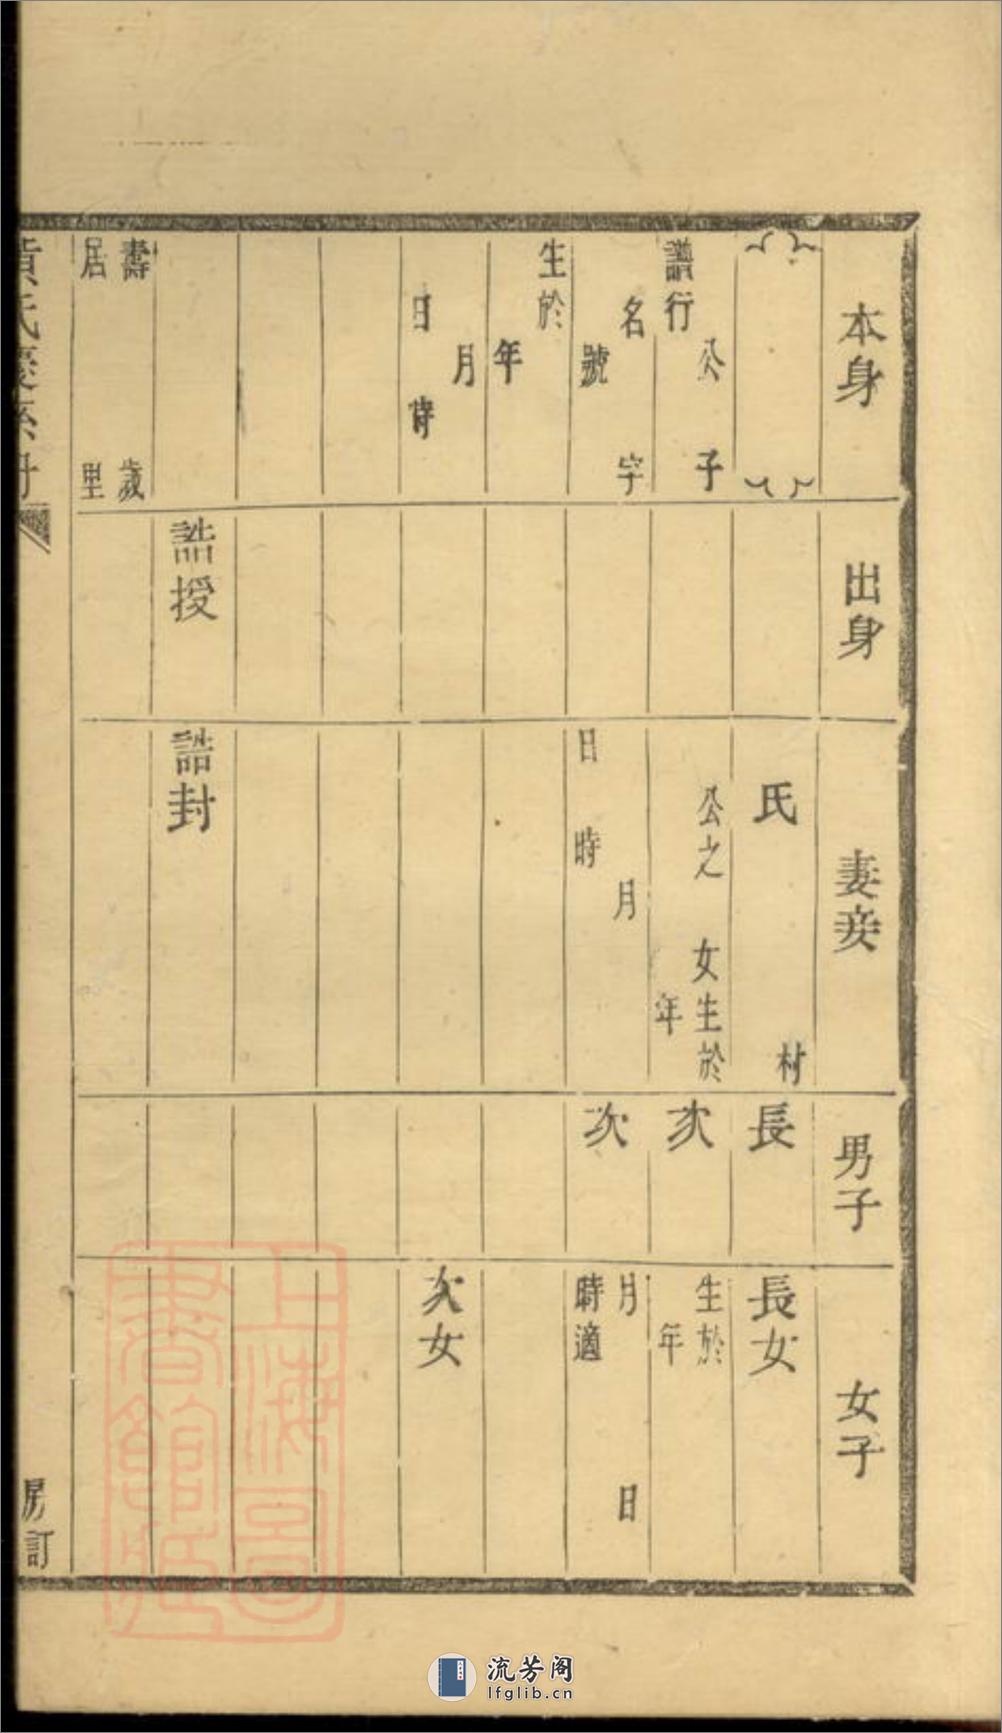 本身
公子
譜行
名字
號
生於
年
月
日時
壽歲
居里
出身
誥授
妻妾
氏
村
公之女生於
年
月
日時
誥封
男子
長
次
次
女子
長女
生於
年
月日
時適
次女
氏
房訂
上海圖
書館藏
流芳阁
lfglib.cn